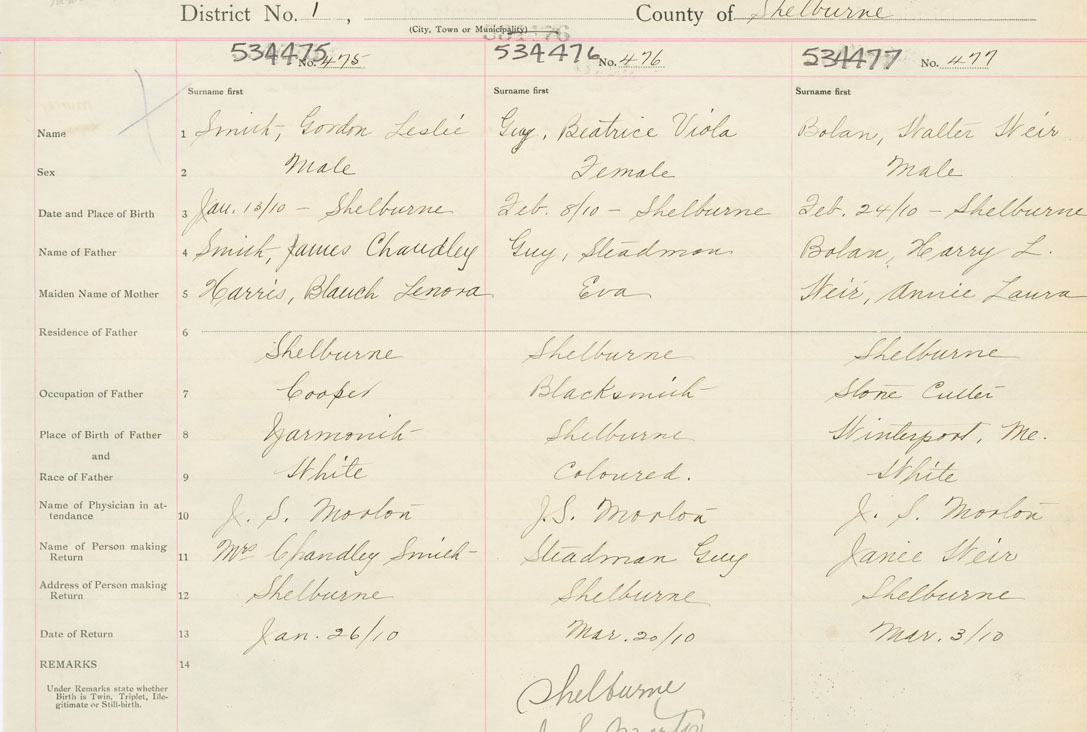 District No. 1, County of Shelburne
(City, Town or Municipality)
534475 No. 475 534476 No. 476 534477 No. 477
Surname first Surname first Surname first
Name 1 Smith, Gordon Leslie Guy, Beatrice Viola Bolan, Walter Weir
Sex 2 Male Female Male
Date and Place of Birth 3 Jan. 13/10 - Shelburne Feb. 8/10 - Shelburne Feb. 24/10 - Shelburne
Name of Father 4 Smith, James Chandley Guy, Steadman Bolan, Harry L.
Maiden Name of Mother 5 Harris, Blanch Lenora Eva Weir, Annie Laura
Residence of Father 6
Shelburne Shelburne Shelburne
Occupation of Father 7 Cooper Blacksmith Stone Cutter
Place of Birth of Father 8 Yarmouth Shelburne Winterport, Me.
and
Race of Father 9 White Coloured. White
Name of Physician in at-
tendance 10 J. S. Morton J.S. Morton J. S. Morton
Name of Person making
Return 11 Mrs Chandley Smith Steadman Guy Janie Weir
Address of Person making
Return 12 Shelburne Shelburne Shelburne
Date of Return 13 Jan. 26/10 Mar. 20/10 Mar. 3/10
REMARKS 14
Under Remarks state whether
Birth is Twin, Triplet, Ille-
gitimate or Still-birth.
Shelburne